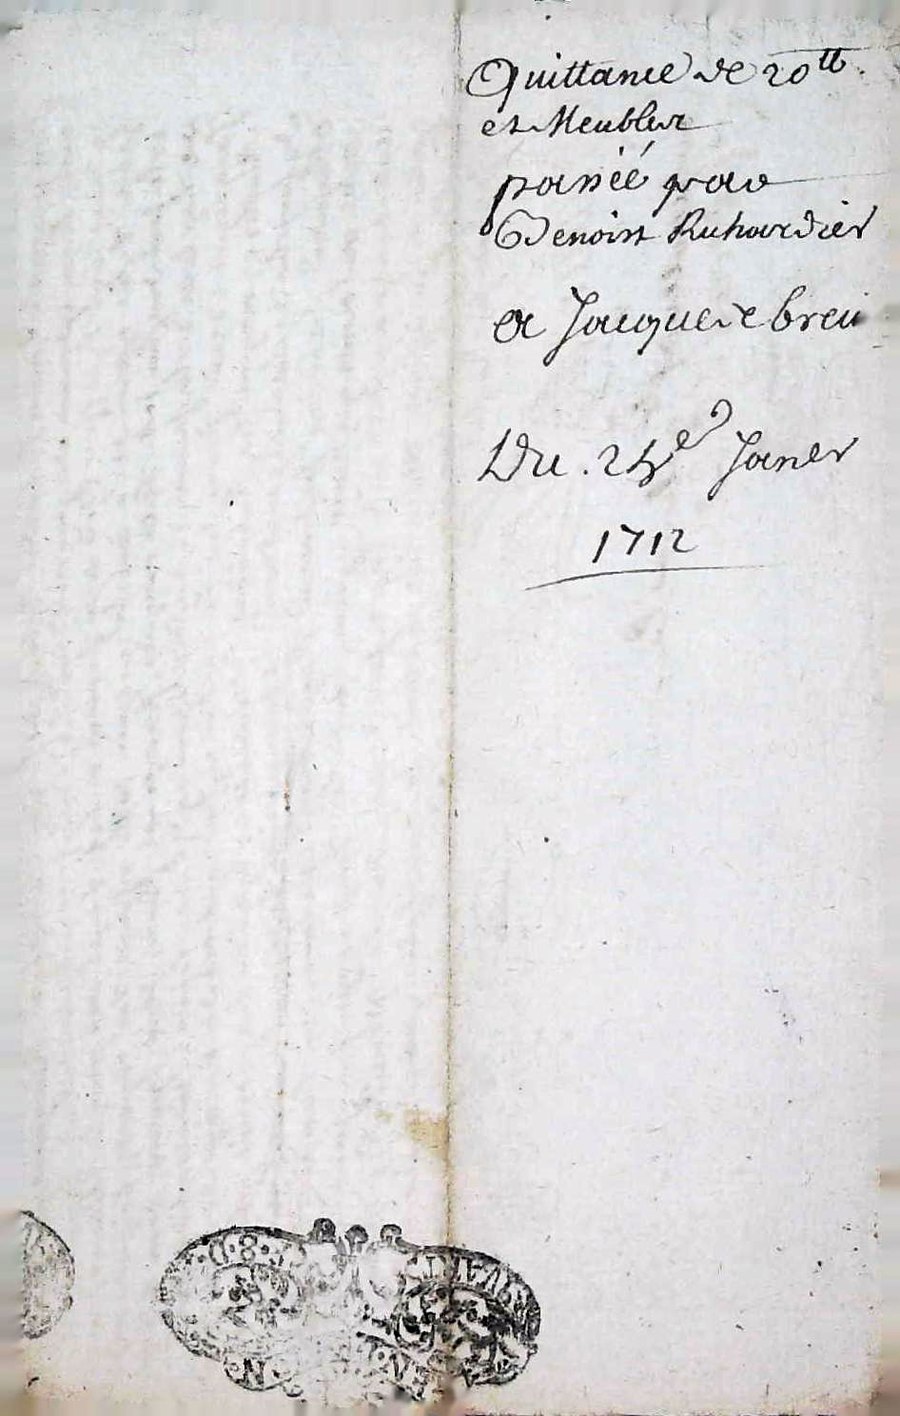 Quittance de 20 tt
et Meubles
passée par
Benoist Richardier
a Jacque debreu
Du . 24e Janer
1712